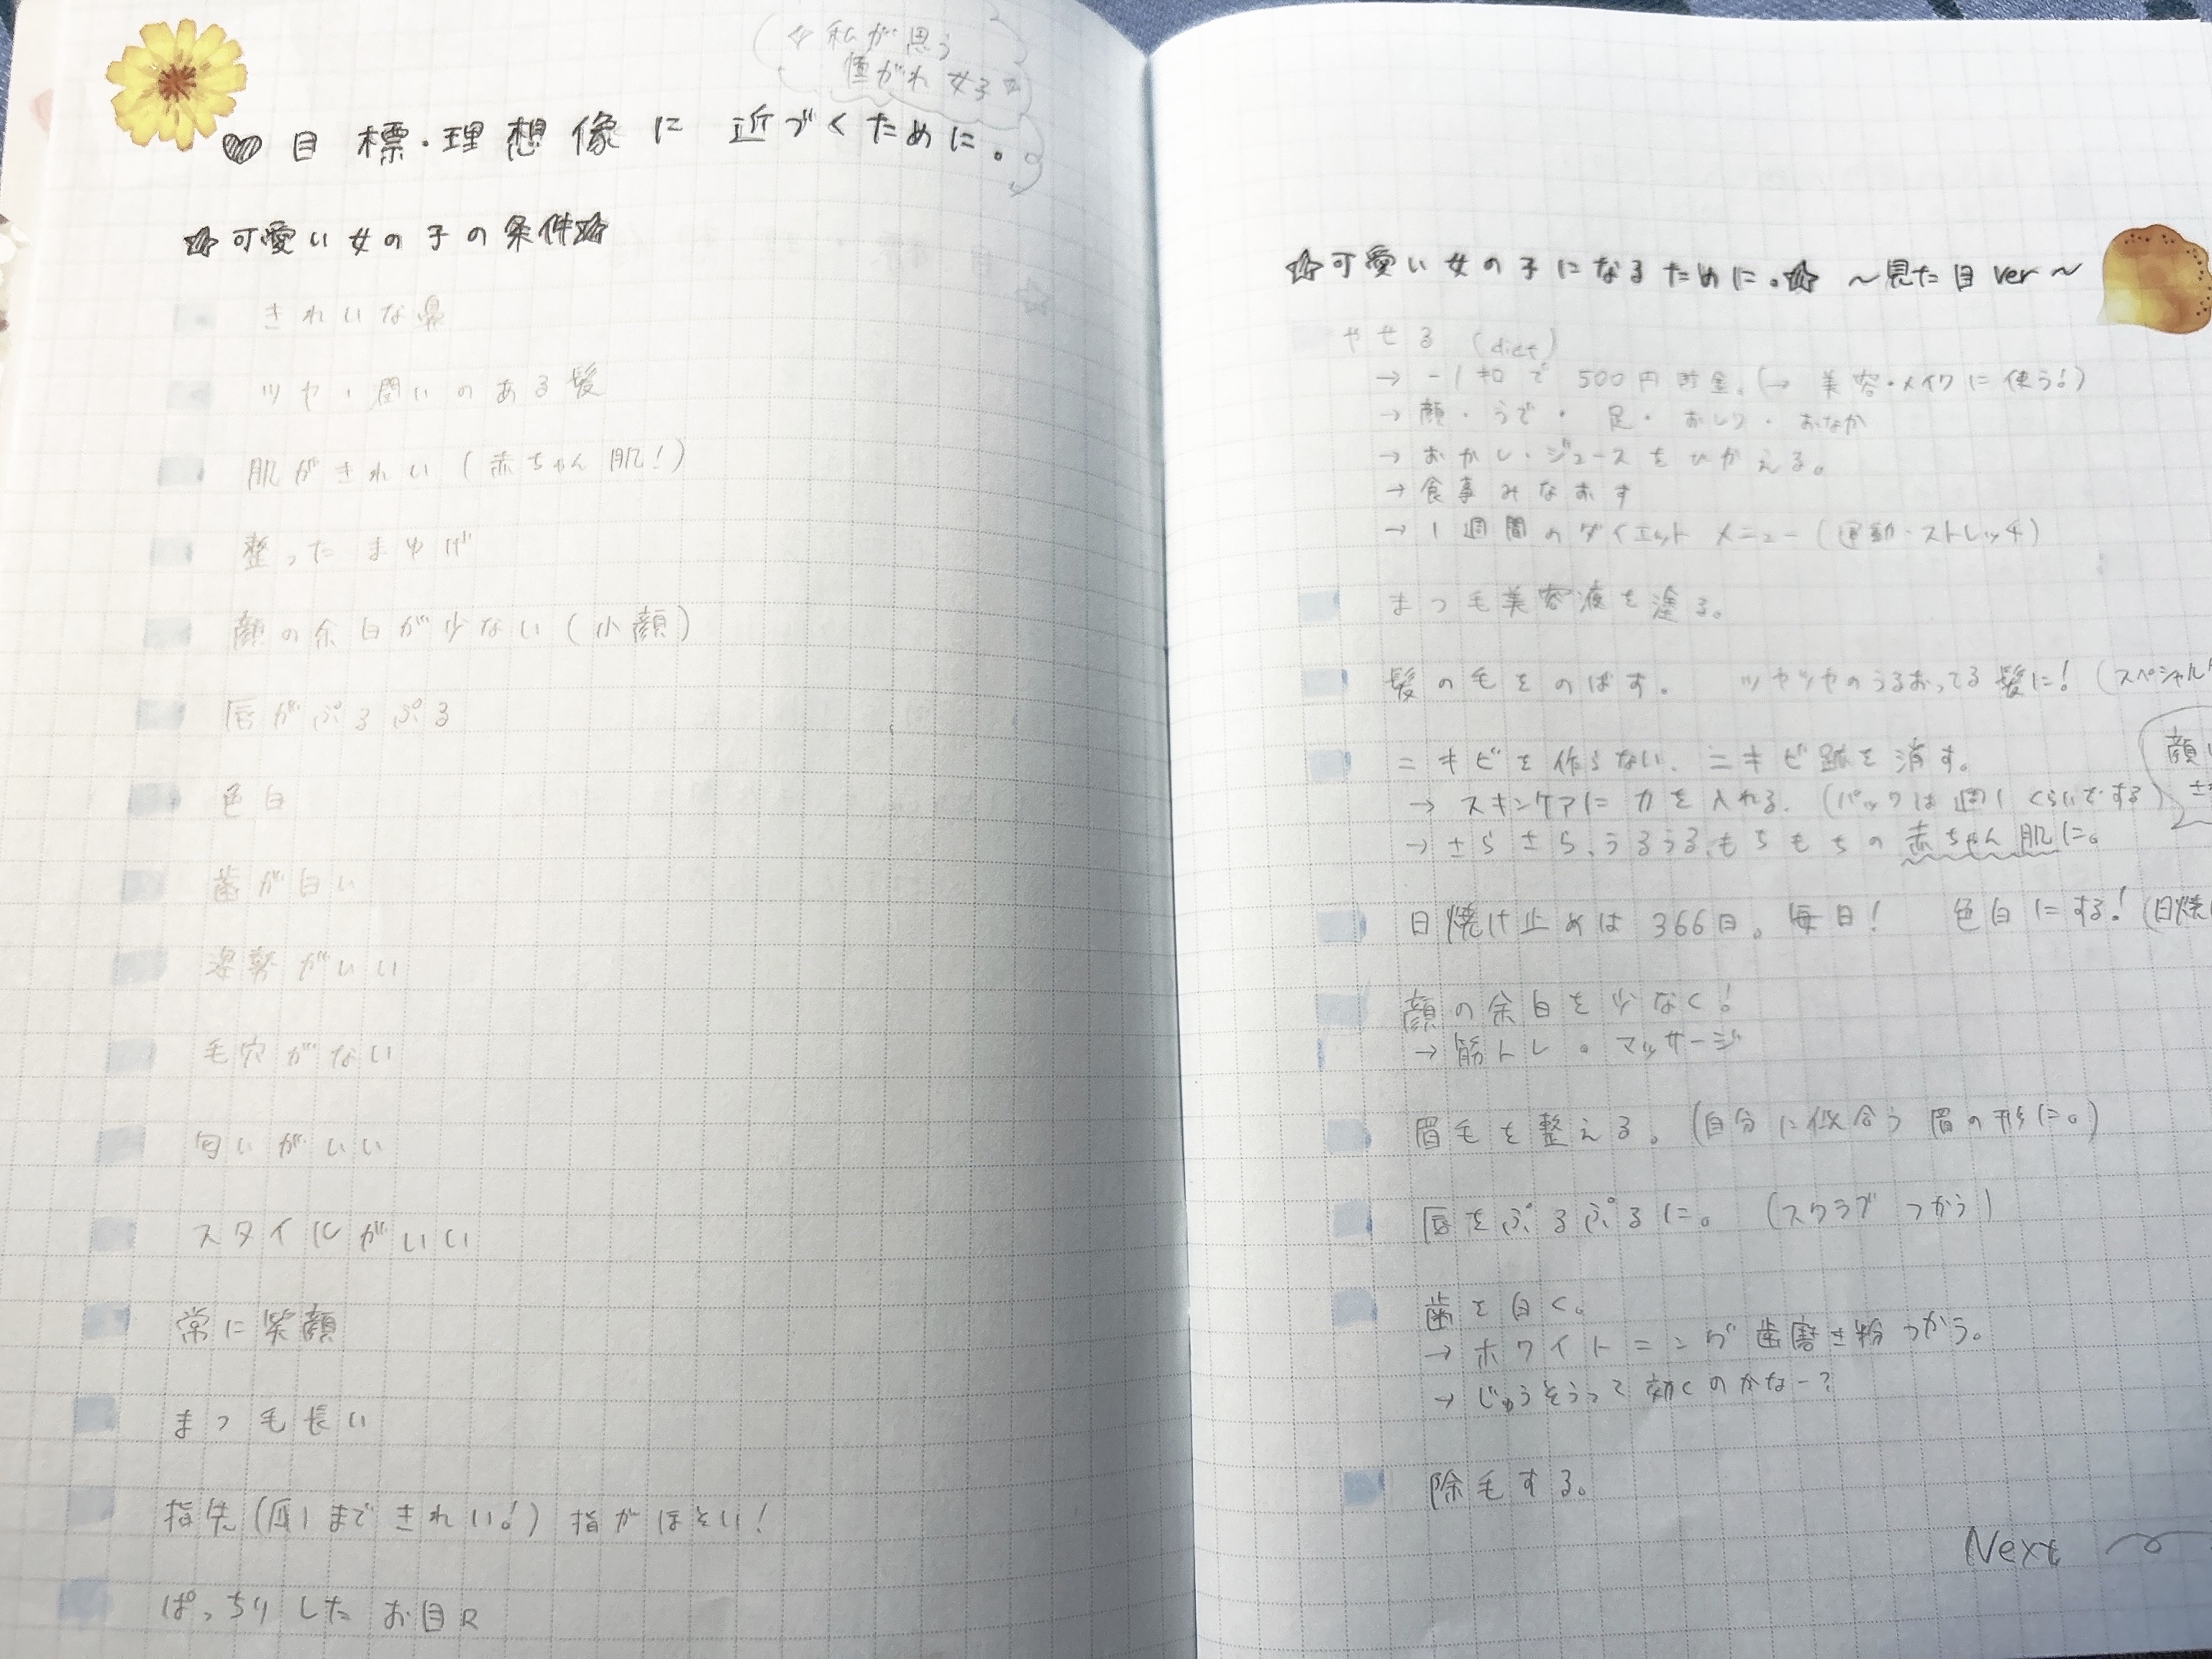 私が思う
憧がれ女子
目標・理想像に近づくために。
☆可愛い女の子の条件☆
きれいな鼻
ツヤ・潤いのある髪
肌がきれい(赤ちゃん肌!)
整ったまゆげ
顔の余白が少ない(小顔)
唇がぷるぷる
色白
歯が白い
姿勢がいい
毛穴がない
匂いがいい
スタイルがいい
常に笑顔
まつ毛長い
指先(爪)まできれい!)指がほそい!
ぱっちりしたお目
☆可愛い女の子になるために。☆ ~見た目ver~
やせる (diet)
→ -1キロで500円貯金。(→ 美容・メイクに使う!)
→ 顔・うで・足・おしり・おなか
→ おかし・ジュースをひかえる。
→ 食事みなおす
→ 1週間のダイエットメニュー(運動・ストレッチ)
まつ毛美容液を塗る。
髪の毛をのばす。 ツヤツヤのうるおってる髪に!(スペシャル
ニキビを作らない、ニキビ跡を消す。
→ スキンケアに力を入れる。(パックは週1くらいでする)
→ さらさら、うるうる、もちもちの赤ちゃん肌に。
顔
日焼け止めは366日。毎日! 色白にする!(日焼
顔の余白を少なく!
→ 筋トレ・マッサージ
眉毛を整える。(自分に似合う眉の形に。)
唇をぷるぷるに。 (スクラブつかう)
歯を白く。
→ ホワイトニング歯磨き粉つかう。
→ じゅうそうって効くのかなー?
除毛する。
Next